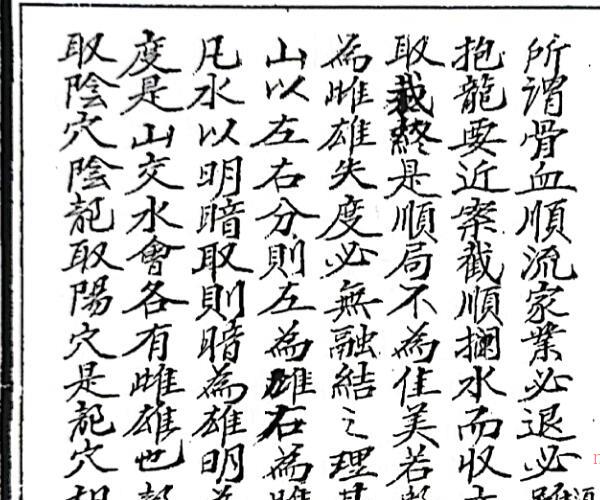 所謂骨血順流家業必退必
抱龍要近案截順攔水而収
取截終是順局不為佳美若
為雌雄失度必無融結之理
山以左右分則左為雄右為
凡水以明暗取則暗為雄明
度是山交水會各有雌雄也
取陰穴陰龍取陽穴是龍穴